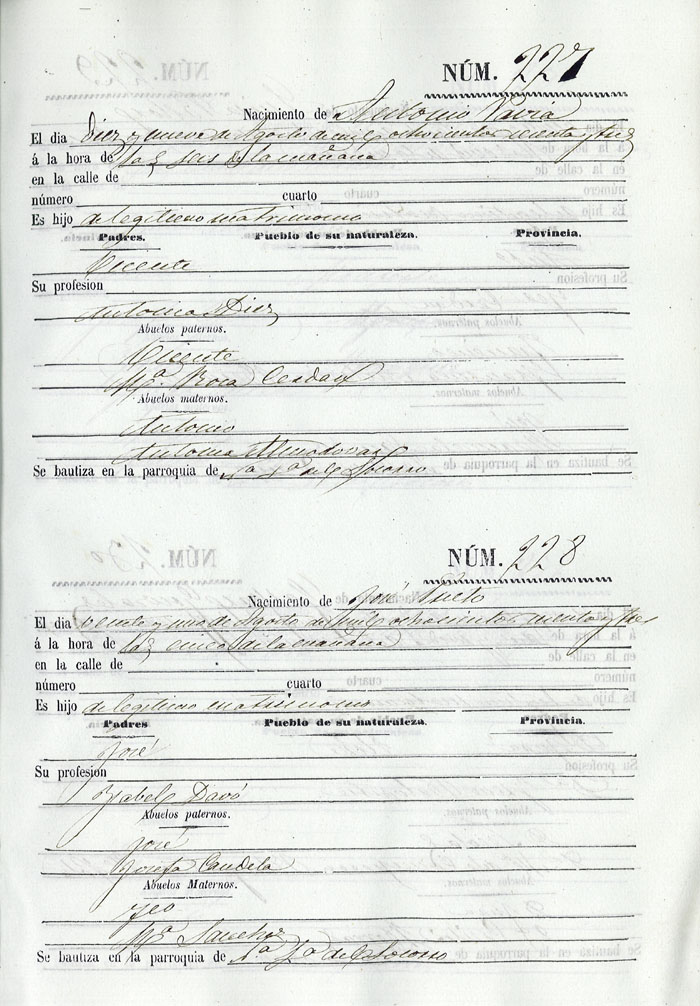 NÚM. 227
Nacimiento de Antonio Pavia
El dia diez y nueve de Agosto de mil ochocientos setenta y tres
á la hora de las seis de la mañana
en la calle de
número cuarto
Es hijo de legitimo matrimonio
Padres. Pueblo de su naturaleza. Provincia.
Vicente
Su profesion
Antonia Diez
Abuelos paternos.
Vicente
Mª Rosa Cerdan
Abuelos maternos.
Antonio
Antonia Almodovar
Se bautiza en la parroquia de Nª Sª del Socorro
NÚM. 228
Nacimiento de José Nieto
El dia veinte y uno de Agosto de mil ochocientos setenta y tres
á la hora de las cinco de la mañana
en la calle de
número cuarto
Es hijo de legitimo matrimonio
Padres Pueblo de su naturaleza. Provincia.
José
Su profesion
Ysabel Davó
Abuelos paternos.
José
Josefa Candela
Abuelos Maternos.
Mª Sanchez
Se bautiza en la parroquia de Nª Sª del Socorro